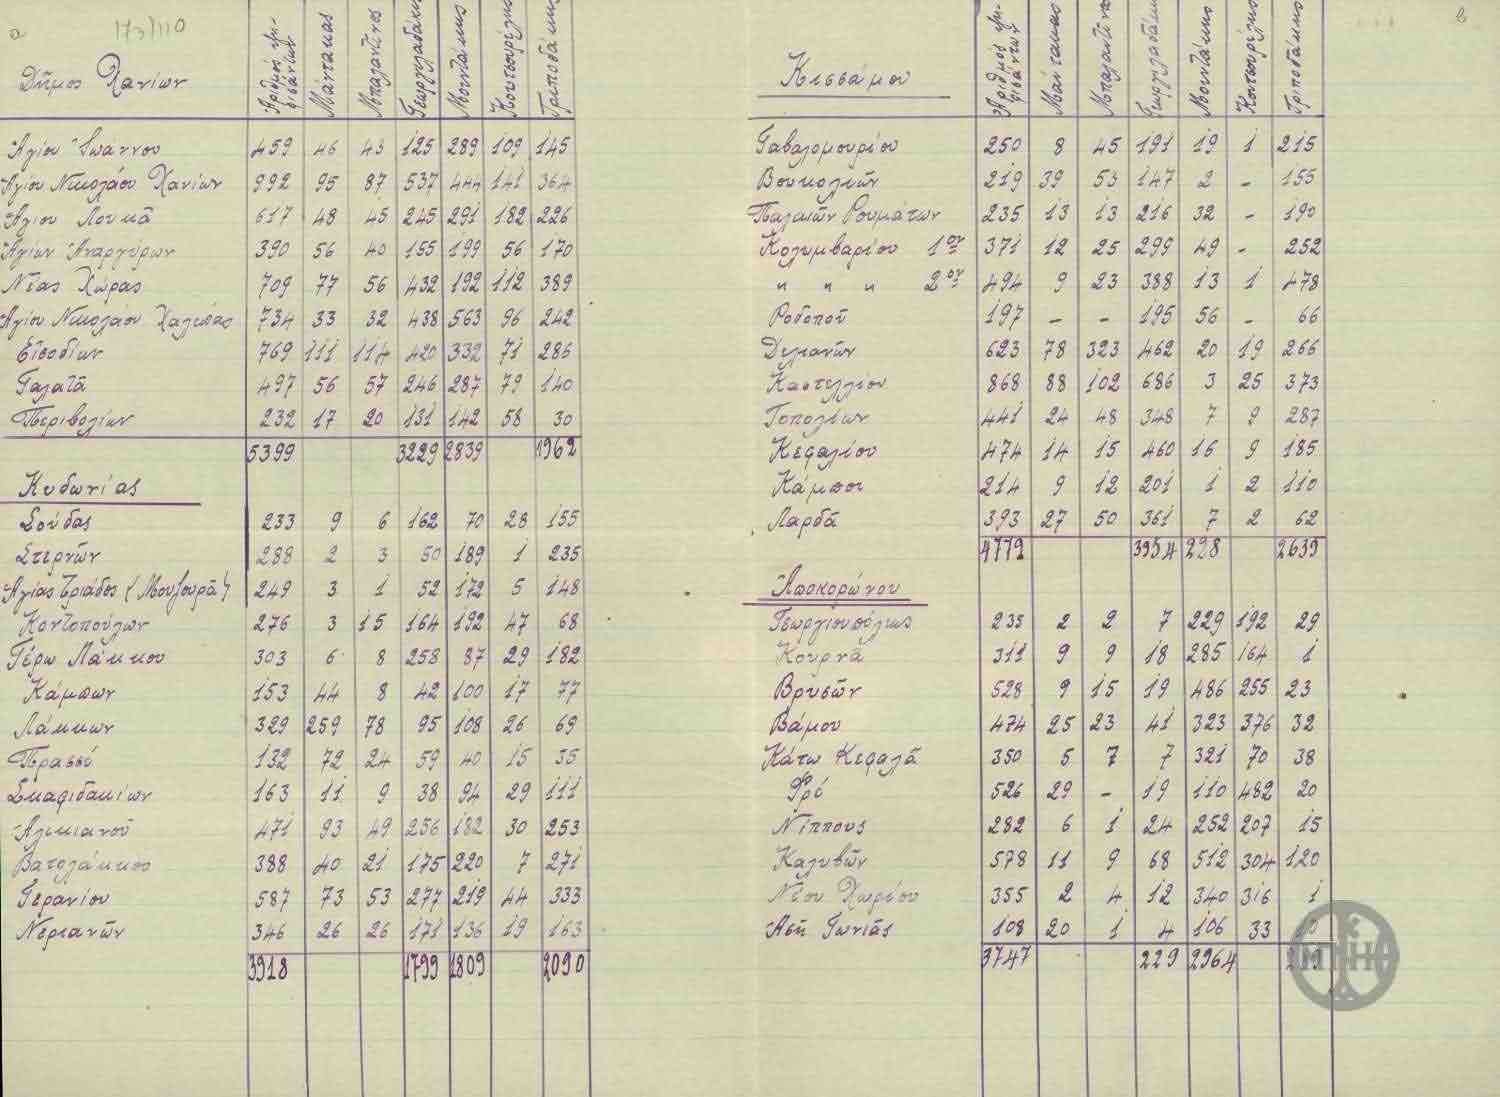 α 173/110
Δῆμος Χανίων Ἀριθμός ψηφισάντων Μάντακας Μπαλαντῖνος Γεωργιλαδάκις Μουντάκης Κουτσουρέλης Τριποδάκης
Ἁγίου Ἰωάννου 459 46 43 125 289 109 145
Ἁγίου Νικολάου Χανίων 992 95 87 537 444 141 364
Ἁγίου Λουκᾶ 617 48 45 245 291 182 226
Ἁγίων Ἀναργύρων 390 56 40 155 199 56 170
Νέας Χώρας 709 77 56 432 192 112 389
Ἁγίου Νικολάου Χαλέπας 734 33 32 438 563 96 242
Εἰσοδίων 769 111 114 420 332 71 286
Γαλατᾶ 497 56 57 246 287 79 140
Περιβολίων 232 17 20 131 142 58 30
5399 3229 2839 1962
Κυδωνίας
Σούδας 233 9 6 162 70 28 155
Στερνῶν 288 2 3 50 189 1 235
Ἁγίας Τριάδος (Μουζουρᾶ) 249 3 1 52 172 5 148
Κοντοπούλων 276 3 15 164 192 47 68
Γέρω Λάκκου 303 6 8 258 87 29 182
Κάμπων 153 44 8 42 100 17 77
Λάκκων 329 259 78 95 108 26 69
Πρασσέ 132 72 24 59 40 15 35
Σκαφιδακίων 163 11 9 38 94 29 111
Ἀλικιανοῦ 471 93 49 256 182 30 253
Βατολάκκου 388 40 21 175 220 7 271
Γερανίου 587 73 53 277 219 44 333
Νεριανῶν 346 26 26 171 136 19 163
3918 1799 1809 2090
β
Κισσάμου Ἀριθμός ψηφισάντων Μάντακας Μπαλαντῖνος Γεωργιλαδάκις Μουντάκης Κουτσουρέλης Τριποδάκης
Γαβαλομουρίου 250 8 45 191 19 1 215
Βουκολιῶν 219 39 53 147 2 - 155
Παλαιῶν Ρουμάτων 235 13 13 216 32 - 190
Κολυμβαρίου 1ον 371 12 25 299 49 - 252
" " " 2ον 494 9 23 388 13 1 478
Ροδοποῦ 197 - - 195 56 - 66
Δελιανῶν 623 78 323 462 20 19 266
Καστελλίου 868 88 102 686 3 25 373
Τοπολίων 441 24 48 348 7 2 287
Κεφαλίου 474 14 15 460 16 9 185
Κάμποι 214 9 12 201 1 2 110
Λαρδᾶ 393 27 50 361 7 2 62
4779 3954 228 2639
Ἀποκορώνου
Γεωργιουπόλεως 235 2 2 7 229 192 29
Κουρνᾶ 311 9 9 18 285 164 1
Βρυσῶν 528 9 15 19 486 255 23
Βάμου 474 25 23 41 323 376 32
Κάτω Κεφαλᾶ 350 5 7 7 321 70 38
Φρέ 526 29 - 19 110 482 20
Νίππους 282 6 1 24 252 207 15
Καλυβῶν 578 11 9 68 512 304 120
Νέου Χωρίου 355 2 4 12 340 316 1
Ἀσῆ Γωνιᾶς 108 20 1 4 106 33
3747 229 2964